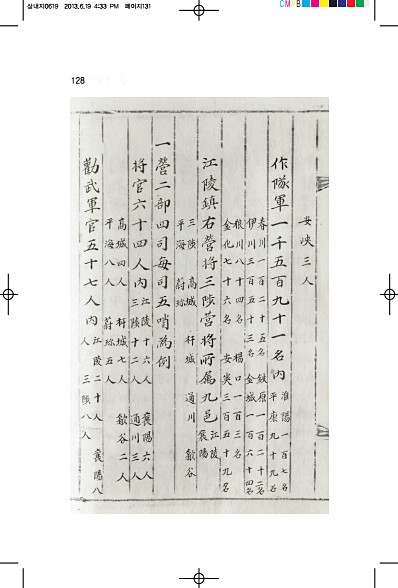 삼내지0619 2013.6.19 4:33 PM 페이지131
CMYB
128
安峽三人
作隊軍一千五百九十一名內 淮陽一百七名
平康九十九名
春川一百二十五名 鐵原一百二十二名
伊川三百五十三名 金城一百六十四名
狼川八十四名 楊口一百三名
金化七十六名 安峽三百五十九名
江陵鎭右營將三陟營將所屬九邑 江陵
襄陽
三陟 高城 杆城 通川 歙谷
平海 蔚珍
一營二部四司每司五哨爲例
將官六十四人內 江陵十六人 襄陽六人
三陟十二人 通川三人
高城四人 杆城七人 歙谷二人
平海八人 蔚珍五人
勸武軍官五十七人內 江陵二十人 襄陽八
人 三陟八人